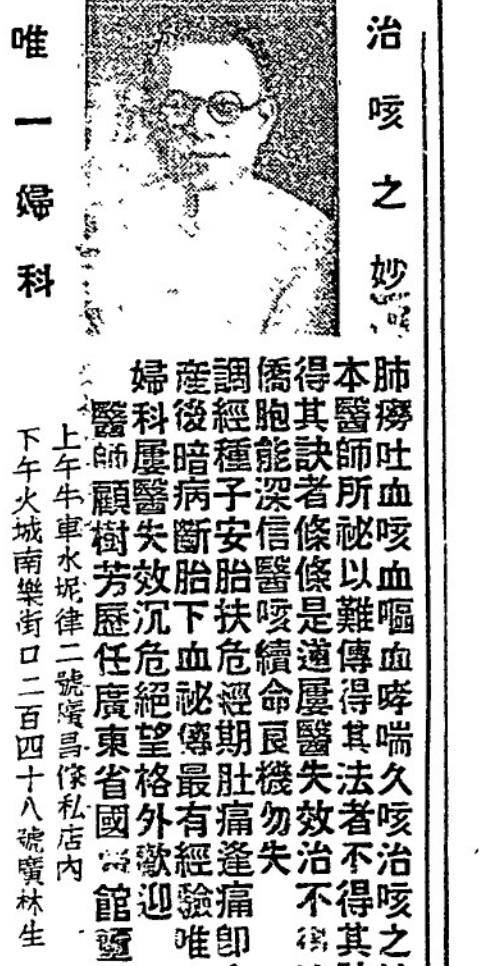 治咳之妙
肺癆吐血咳血嘔血哮喘久咳治咳之
本醫師所祕以難傳得其法者不得其
得其訣者條條是道屢醫失效治不
僑胞能深信醫咳續命良機勿失
調經種子安胎扶危經期肚痛逢痛卽
産後暗病斷胎下血祕傳最有經驗唯
婦科屢醫失效沉危絕望格外歡迎
醫師顧樹芳歷任廣東省國館
唯一婦科
上午牛車水坭律二號廣昌傢私店內
下午火城南樂街口二百四十八號廣林生